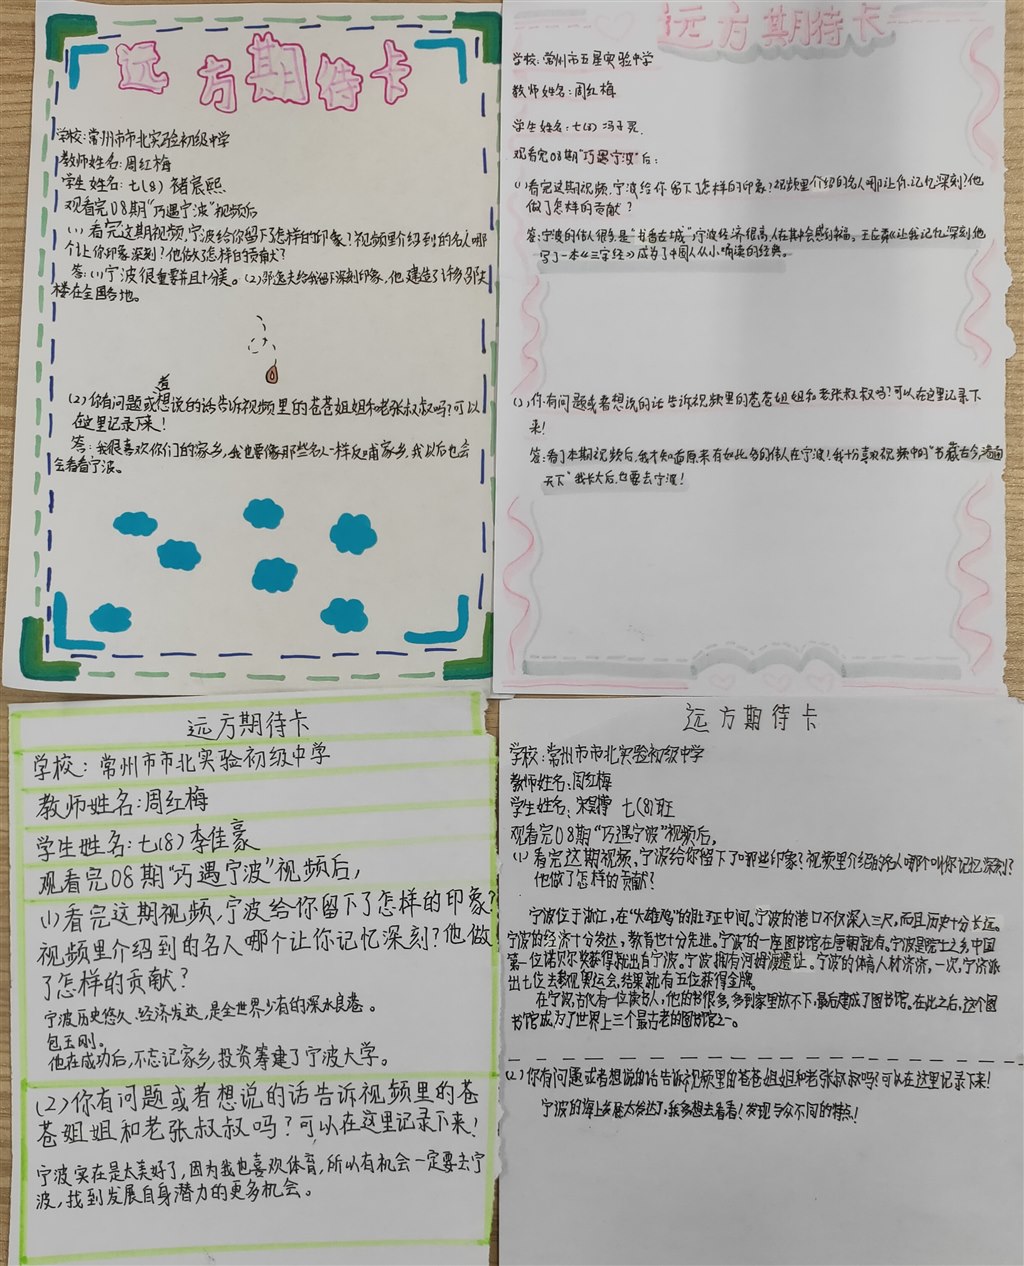 远方期待卡
学校:常州市市北实验初级中学
教师姓名:周红梅
学生姓名:七(8) 褚宸熙
观看完08期“巧遇宁波”视频后
(1)看完这期视频,宁波给你留下了怎样的印象?视频里介绍到的名人哪
个让你印象深刻?他做了怎样的贡献?
答:(1)宁波很重要并且十分美。(2)邵逸夫给我留下深刻印象,他建造了许多邵氏
楼在全国各地。
(2)你有问题或者想说的话告诉视频里的苍苍姐姐和老张叔叔吗?可以
在这里记录下来!
答:我很喜欢你们的家乡,我也要像那些名人一样反哺家乡,我以后也会
去看看宁波。
远方期待卡
学校:常州市五星实验中学
教师姓名:周红梅
学生姓名:七(8) 冯子灵.
观看完08期“巧遇宁波”后:
(1)看完这期视频,宁波给你留下了怎样的印象?视频里介绍的名人哪让你记忆深刻?他
做了怎样的贡献?
答:宁波的伟人很多是“书香古城”,宁波经济很高,人在其中会感到幸福。王应麟让我记忆深刻,他
写了一本《三字经》成为了中国人从小诵读的经典。
(2)你有问题或者想说的话告诉视频里的苍苍姐姐和老张叔叔吗?可以在这里记录下
来!
答:看了本期视频后,我才知道原来有如此多的伟人在宁波!我十分喜欢视频中的“书藏古今,港通
天下”我长大后,也要去宁波!
远方期待卡
学校:常州市市北实验初级中学
教师姓名:周红梅
学生姓名:七(8)李佳豪
观看完08期“巧遇宁波”视频后,
(1)看完这期视频,宁波给你留下了怎样的印象?
视频里介绍到的名人哪个让你记忆深刻?他做
了怎样的贡献?
宁波历史悠久、经济发达,是全世界少有的深水良港。
包玉刚。
他在成功后,不忘记家乡,投资筹建了宁波大学。
(2)你有问题或者想说的话告诉视频里的苍
苍姐姐和老张叔叔吗?可以在这里记录下来!
宁波实在是太美好了,因为我也喜欢体育,所以有机会一定要去宁
波,找到发展自身潜力的更多机会。
远方期待卡
学校:常州市市北实验初级中学
教师姓名:周红梅
学生姓名:宋 七(8)班
观看完08期“巧遇宁波”视频后,
(1)看完这期视频,宁波给你留下了哪些印象?视频里介绍的名人哪个叫你记忆深刻?
他做了怎样的贡献?
宁波位于浙江,在“大雄鸡”的肚子正中间。宁波的港口不仅深入三尺,而且历史十分长远。
宁波的经济十分发达,教育也十分先进。宁波的一座图书馆在唐朝就有。宁波是院士之乡中国
第一位诺贝尔奖获得就出自宁波。宁波拥有河姆渡遗址。宁波的体育人材济济,一次,宁济派
出七位去参观奥运会,结果就有五位获得金牌。
在宁波,古代有一位读书人,他的书很多,多到家里放不下,最后建成了图书馆。在此之后,这个图
书馆成为了世界上三个最古老的图书馆之一。
(2)你有问题或者想说的话告诉视频里的苍苍姐姐和老张叔叔吗?可以在这里记录下来!
宁波的海上贸易太发达了,我多想去看看!发现与众不同的特点!